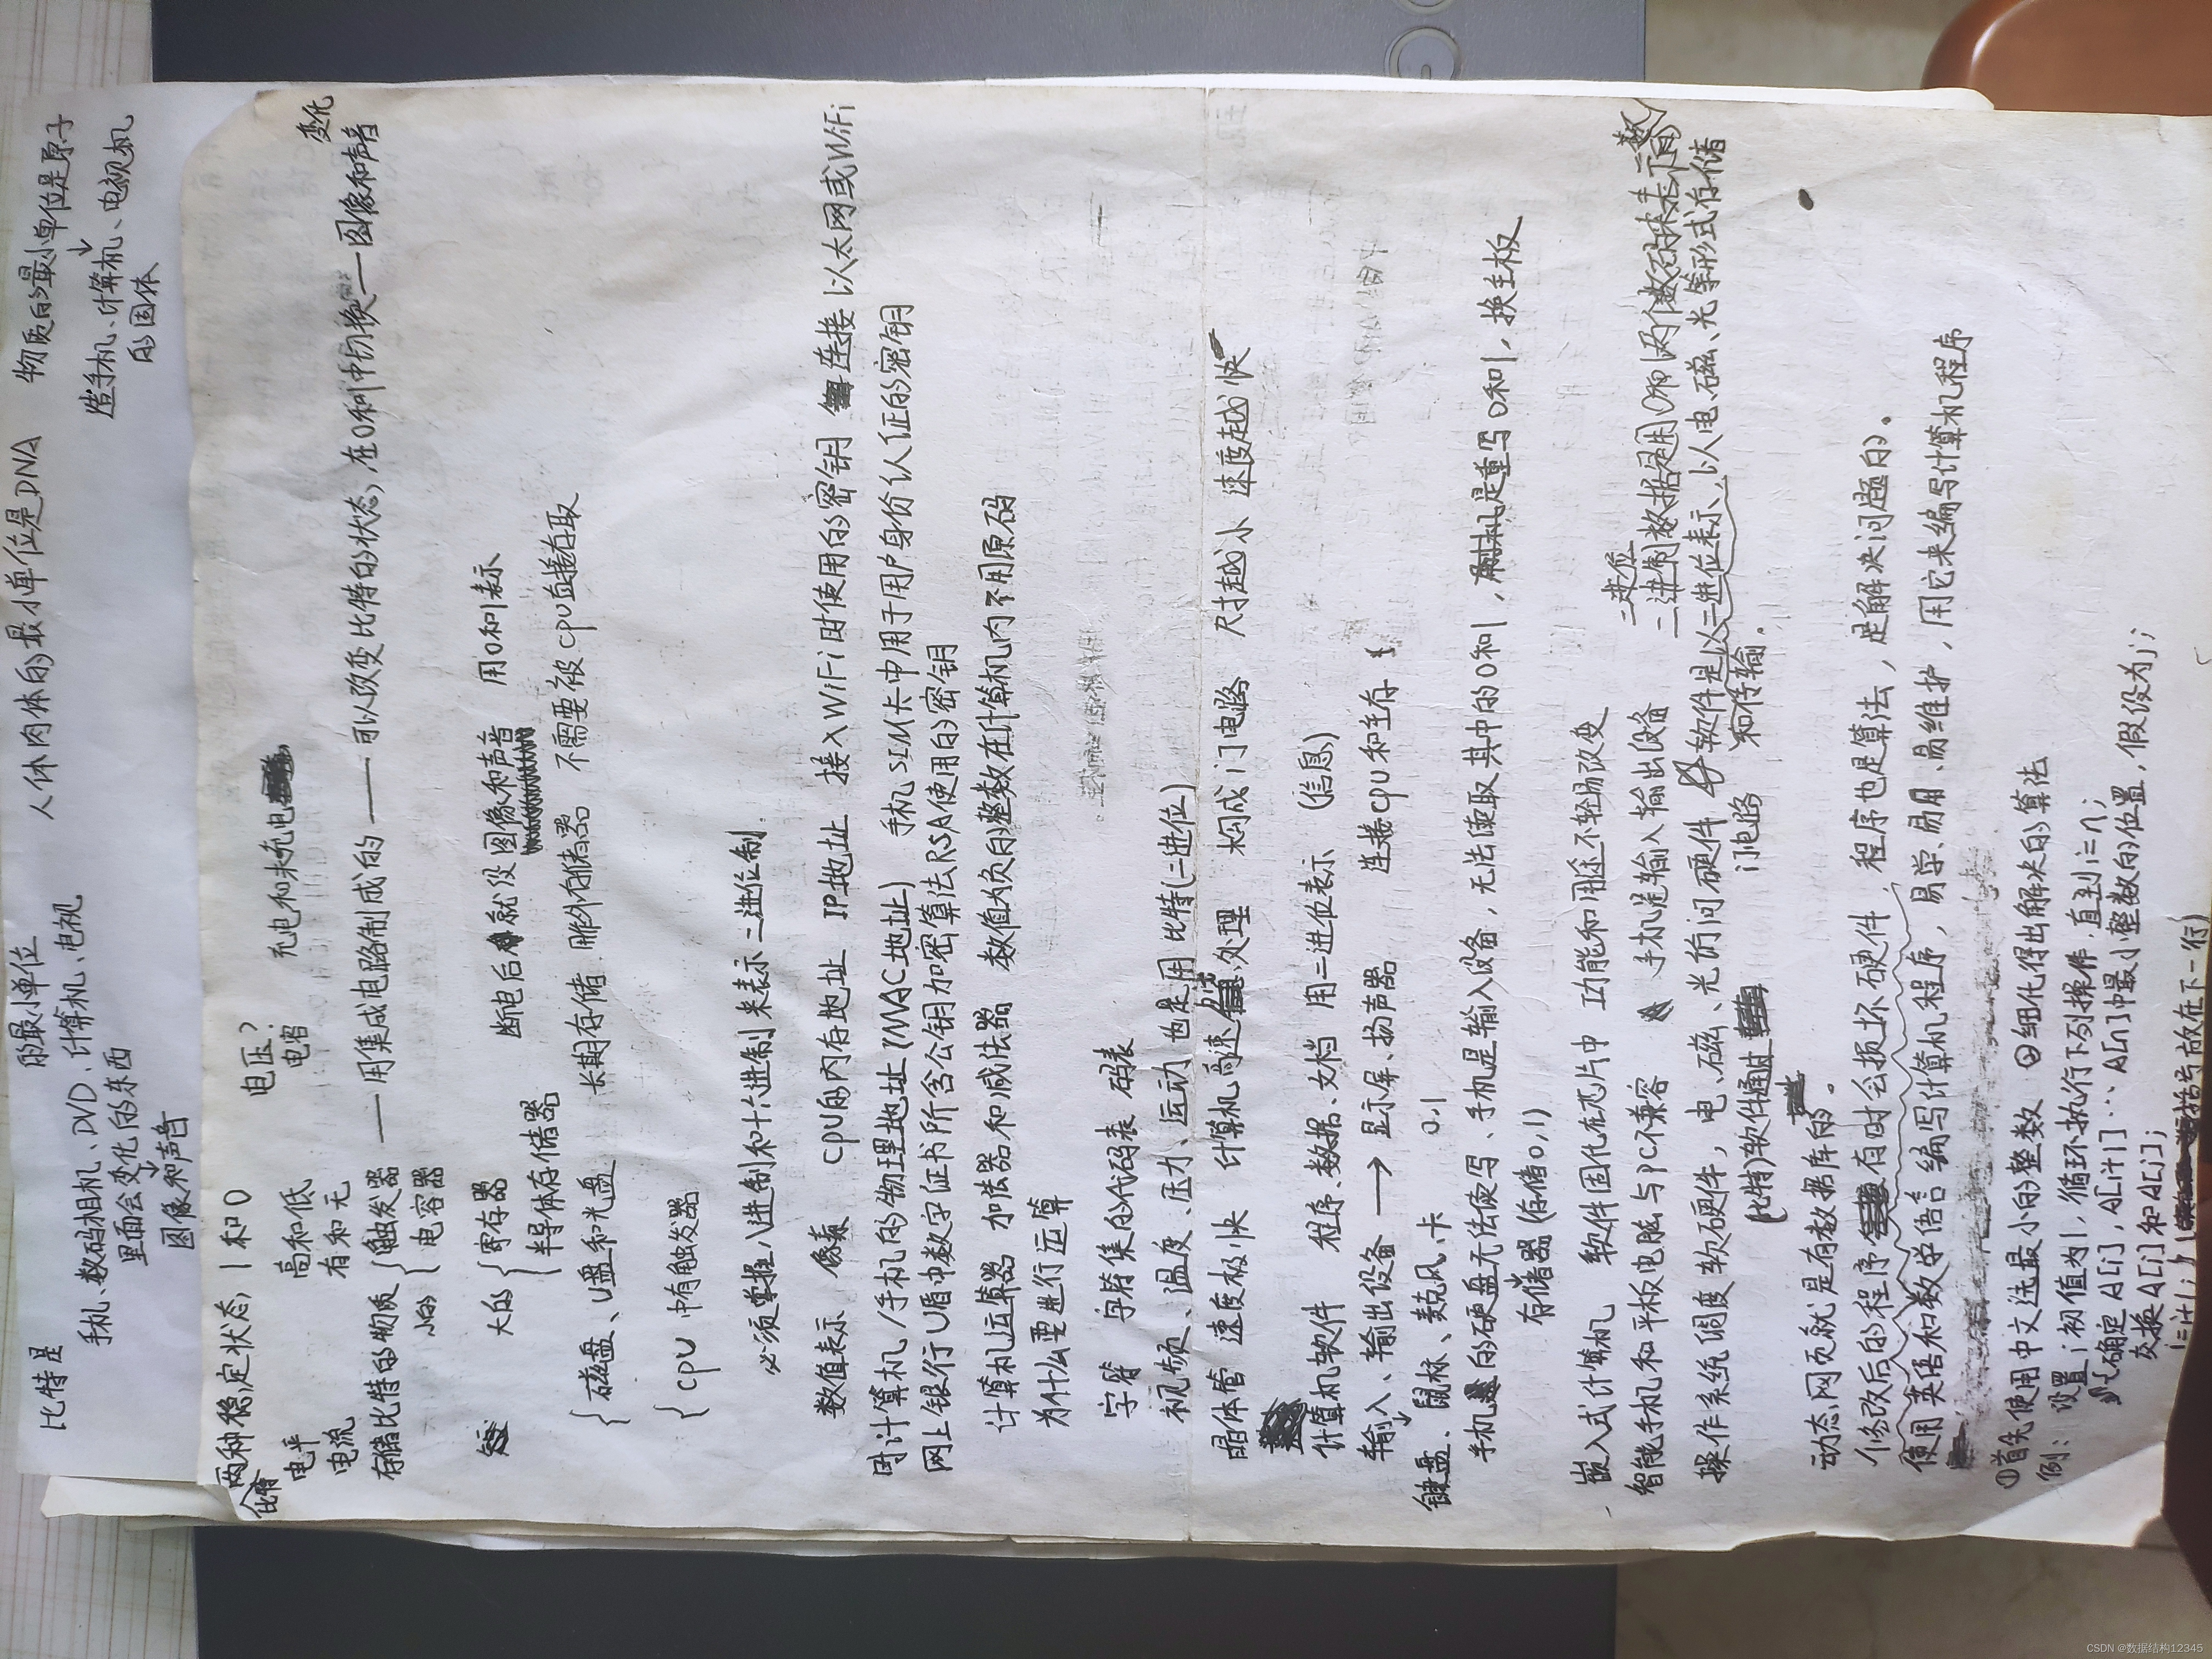 比特是 的最小单位 人体肉体的最小单位是DNA 物质的最小单位是原子
手机、数码相机、DVD、计算机、电视 造手机、计算机、电视机
里面会变化的东西 的固体
图像和声音
两种稳定状态, 1和0 电压? 充电和未充电
比特 电平 高和低 电容
电流 有和无 变化
存储比特的物质 触发器 — 用集成电路制成的 — 可以改变比特的状态, 在0和1中切换 — 图像和声音
小的 电容器
大的 寄存器 断电后就没图像和声音 用0和1表示
半导体存储器
磁盘、U盘和光盘 长期存储 用外存储器 不需要被CPU直接存取
CPU 中有触发器
必须掌握八进制和十六进制来表示二进位制
数值表示 像素 CPU的内存地址 IP地址 接入WiFi时使用的密钥 连接以太网或WiFi
时计算机/手机的物理地址(MAC地址) 手机SIM卡中用于用户身份认证的密钥
网上银行U盾中数字证书所含公钥加密算法RSA使用的密钥
计算机运算器 加法器和减法器 数值为负的整数在计算机内不用原码
为什么要进行运算
字符 字符集的代码表 码表
视频、温度、压力、运动 也是用比特(二进位)
晶体管 速度极快 计算机高速处理 构成门电路 尺寸越小 速度越快
计算机软件 程序、数据、文档 用二进位表示 (信息)
输入、输出设备 → 显示屏、扬声器 连接CPU和主存
键盘、鼠标、麦克风、卡 0,1
手机的硬盘无法读写、手机是输入设备,无法读取其中的0和1,刷机是重写0和1,换主板
存储器(存储0,1)
嵌入式计算机 软件固化在芯片中 功能和用途不轻易改变 二进位
智能手机和平板电脑与PC不兼容 手机是输入输出设备 二进制数据是用0和1两个数码来表示的数
操作系统调度软硬件, 电、磁、光访问硬件 软件是以二进位表示,以人电、磁、光等形式存储
(比特)软件通过 门电路 和传输.
动态网页就是有数据库的。
修改后的程序有时会损坏硬件, 程序也是算法, 是解决问题的。
使用英语和数学语言编写计算机程序, 易学、易用、易维护, 用它来编写计算机程序
①首先使用中文选最小的整数 ②细化得出解决的算法
例: 设置i初值为1,循环执行下列操作,直到i=n;
{确定A[i],A[i+1]···A[n]中最小整数的位置,假设为j;
交换A[i]和A[j];
i=i+1;} 括号放在下一行)
CSDN @数据结构12345